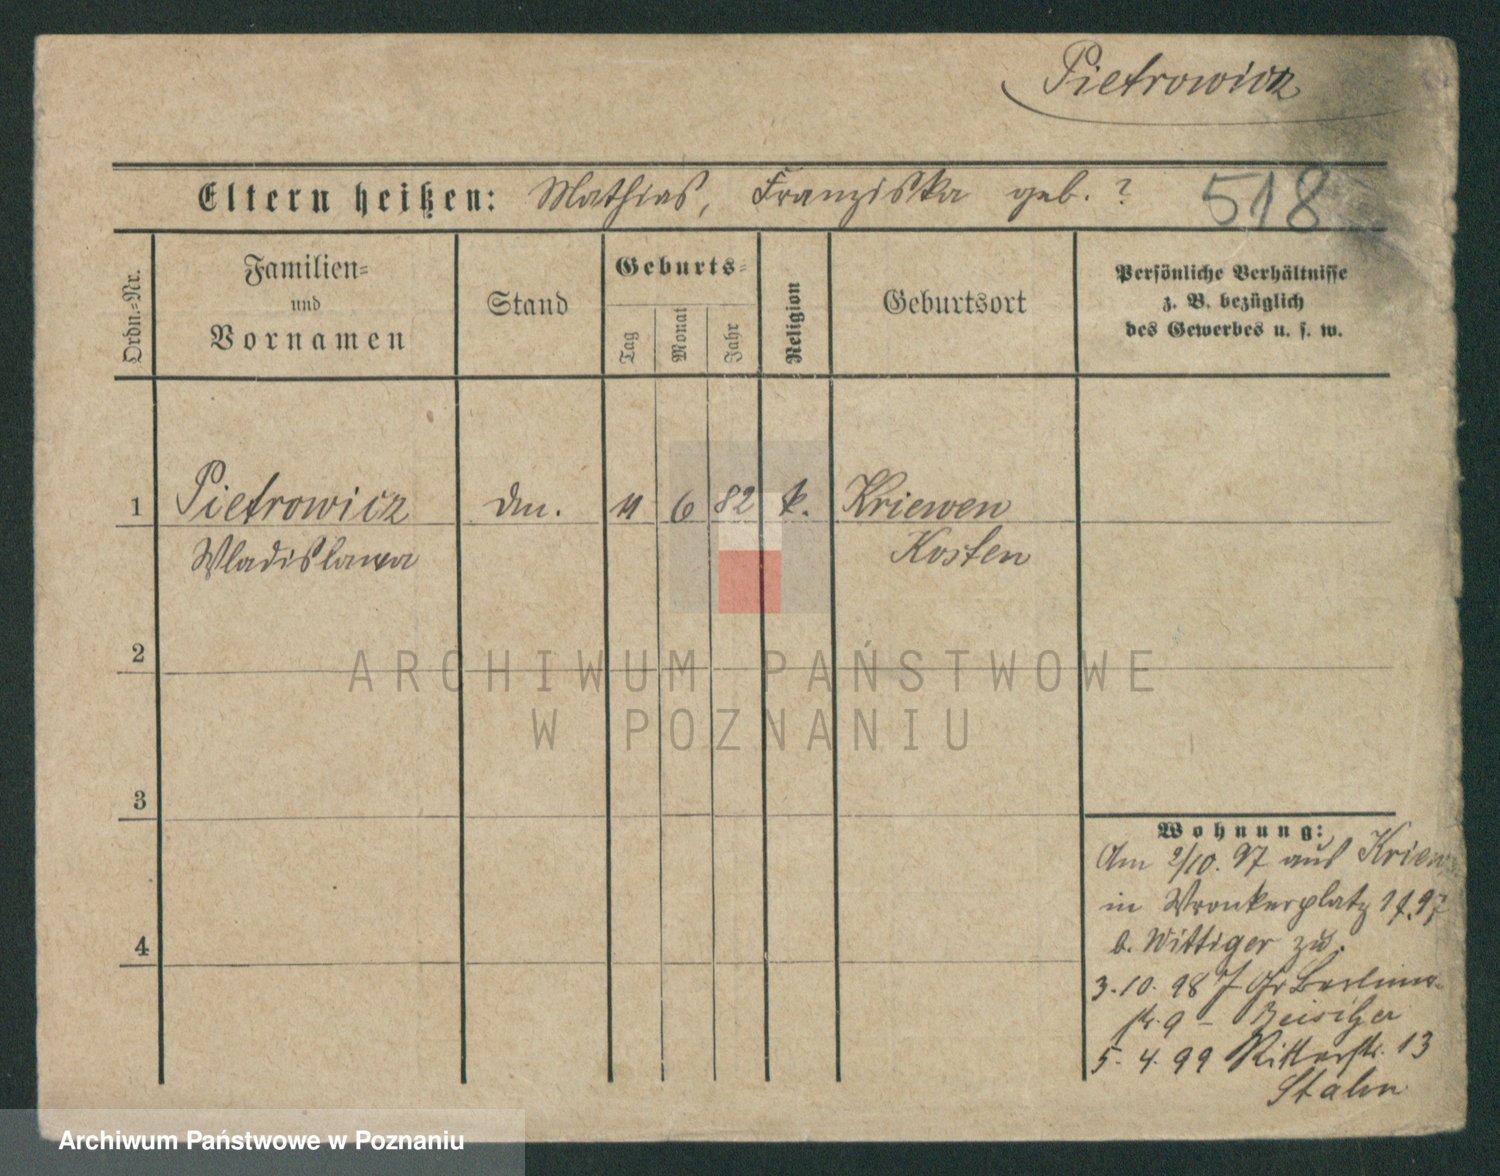 Pietrowicz
Eltern heißen: Mathias, Franziska geb. ? 518
Ordn.-Nr.
Familien-
und
Vornamen
Stand
Geburts-
Tag
Monat
Jahr
Religion
Geburtsort
Persönliche Verhältnisse
z. B. bezüglich
des Gewerbes u. s. w.
1 Pietrowicz Dm. 11 6 82 k. Kriewen
Wladislawa Kosten
2
ARCHIWUM PAŃSTWOWE
W POZNANIU
3
4
Wohnung:
Am 2/10. 97 aus
in Wronkerplatz
b. Wittiger zu.
3.10.98 Gr Berliner-
str. 9 –
5. 4. 99 Ritterstr. 13
Archiwum Państwowe w Poznaniu